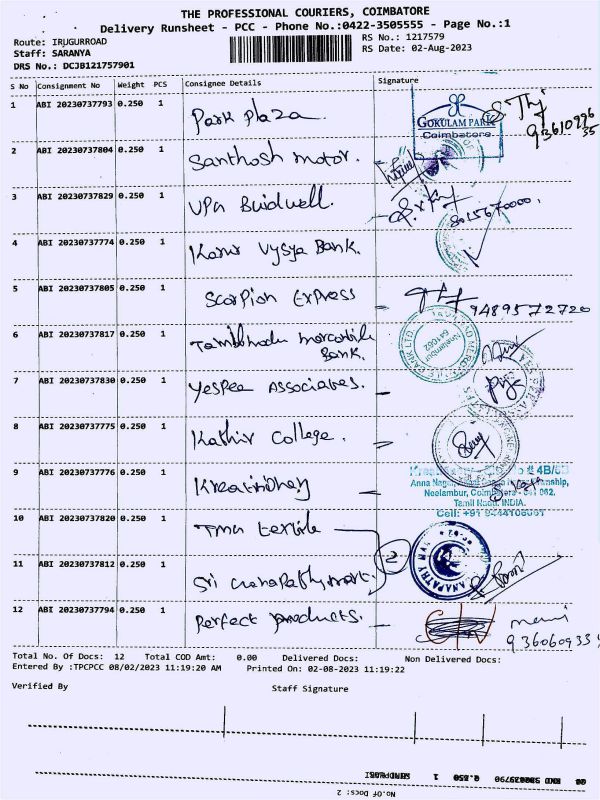 THE PROFESSIONAL COURIERS, COIMBATORE
Delivery Runsheet - PCC - Phone No.:0422-3505555 - Page No.:1
Route: IRUGURROAD
Staff: SARANYA
DRS No.: DCJB121757901
RS No.: 1217579
RS Date: 02-Aug-2023
S No Consignment No Weight PCS Consignee Details Signature
1 ABI 20230737793 0.250 1 Park Plaza
GOKULAM PARK
Coimbatore
2 ABI 20230737804 0.250 1 Santhosh motor.
3 ABI 20230737829 0.250 1 UPn Buidwell.
8015670000.
4 ABI 20230737774 0.250 1 Karur Vysya Bank.
5 ABI 20230737805 0.250 1 Scorpion Express
9489572720
6 ABI 20230737817 0.250 1 Tamilnadu mercantile
Bank.
Neelambur
641062
7 ABI 20230737830 0.250 1 Yespee Associates.
8 ABI 20230737775 0.250 1 Kathir College.
9 ABI 20230737776 0.250 1
# 4B/
Neelambur, Coimbatore - 641 062.
Tamil Nadu. INDIA.
10 ABI 20230737820 0.250 1 Tma textile
2
11 ABI 20230737812 0.250 1 Sri
12 ABI 20230737794 0.250 1 Perfect products.
Total No. Of Docs: 12 Total COD Amt: 0.00 Delivered Docs: Non Delivered Docs:
Entered By :TPCPCC 08/02/2023 11:19:20 AM Printed On: 02-08-2023 11:19:22
Verified By Staff Signature
No.Of Docs: 2